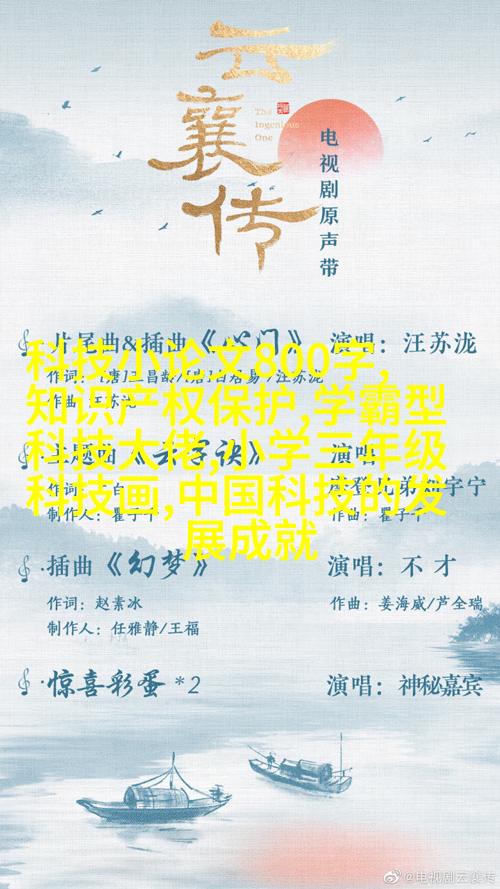 云襄传
The
Ingenious
One
电视剧原声带
片尾曲&插曲《心门》 演唱：汪苏泷
科技小论文800字,
知识产权保护,学霸型
科技大佬,小学三年级
科技画,中国科技的发
展成就
插曲《幻梦》 演唱：不才
作词：赵素冰 作曲：姜海威/芦全瑞
制作人：任雅静/王福
惊喜彩蛋*2 演唱：神秘嘉宾
@电视剧云襄传